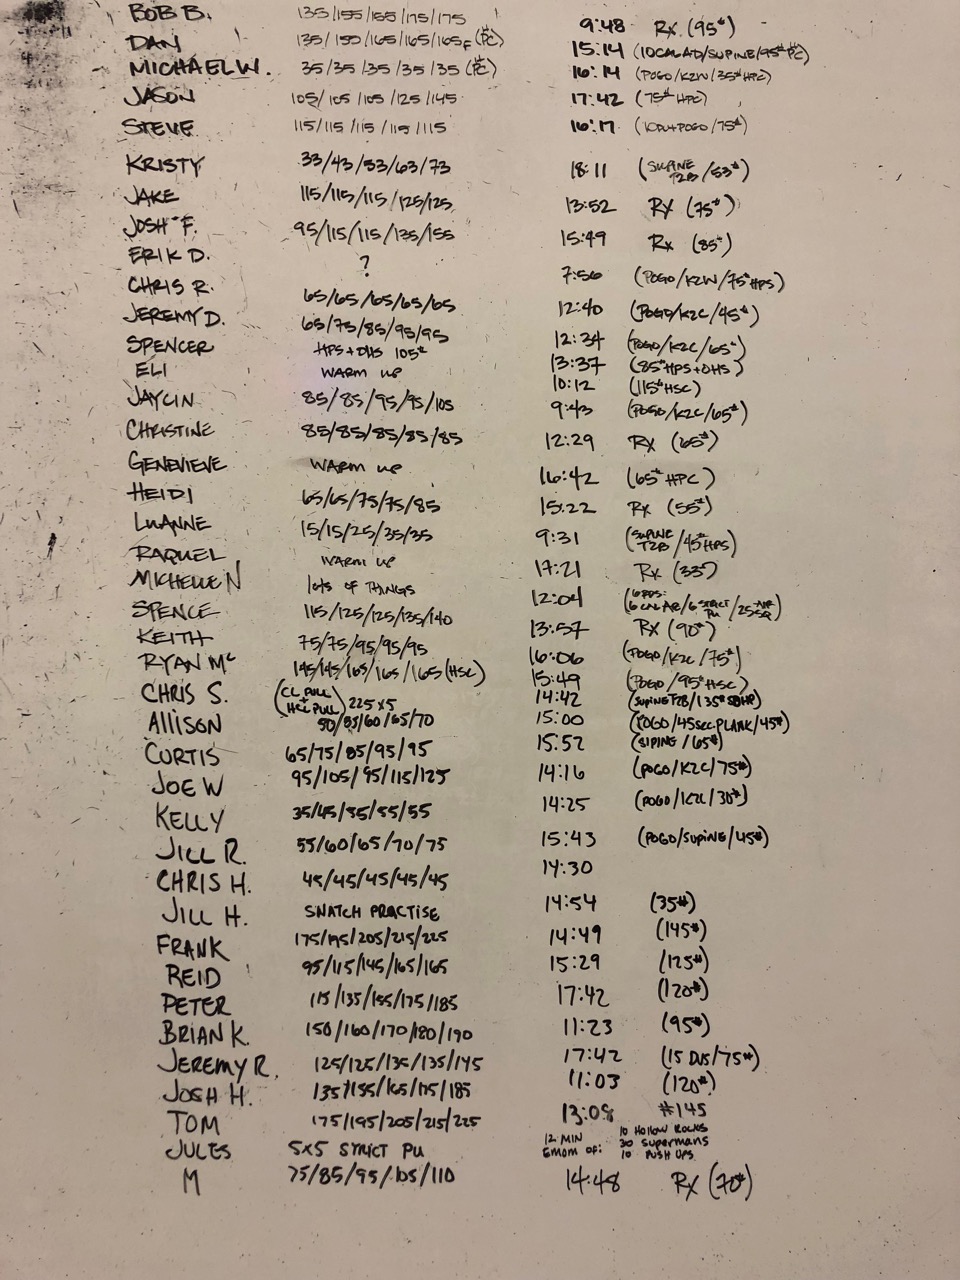 BOB B. 135/155/165/175/175 9:48 Rx (95#)
DAN 135/150/165/165/165F (PC) 15:14 (10CALAD/SUPINE/95# PC)
MICHAEL W. 35/35/35/35/35 (PC) 16:14 (POGO/K2W/35# HPC)
JASON 105/105/105/125/145 17:42 (75# HPC)
STEVE 115/115/115/115/115 16:17
KRISTY 33/43/53/63/73 18:11 (SUPINE T2B/53#)
JAKE 115/115/115/125/125 13:52 RX (75#)
JOSH F. 95/115/115/135/155 15:49 Rx (85#)
ERIK D. ? 7:56 (POGO/K2W/75# HPS)
CHRIS R. 65/65/65/65/65 12:40 (POGO/K2C/45#)
JEREMY D. 65/75/85/95/95 12:34 (POGO/K2C/65#)
SPENCER HPS+OHS 105# 13:37 (85# HPS+OHS)
ELI WARM UP 10:12 (115# HSC)
JAYLIN 85/85/95/95/105 9:43 (POGO/K2C/65#)
CHRISTINE 85/85/85/85/85 12:29 Rx (65#)
GENEVIEVE WARM UP 16:42 (65# HPC)
HEIDI 65/65/75/75/85 15:22 Rx (55#)
LUANNE 15/15/25/35/35 9:31 (SUPINE T2B/45# HPS)
RAQUEL WARM UP 17:21 Rx (33#)
MICHELLE N lots OF THINGS 12:04 (6 RDS: 6 CAL AR/6 STRICT PU/25 AIR SQ)
SPENCE 115/125/125/135/140 13:57 RX (90#)
KEITH 75/75/95/95/95 16:06 (POGO/K2C/75#)
RYAN Mc 145/145/165/165/165 (HSC) 15:49 (POGO/95# HSC)
CHRIS S. (CL PULL HCL PULL) 225x5 14:42 (SUPINE T2B/135# SDHP)
ALLISON 50/55/60/65/70 15:00 (POGO/45SEC PLANK/45#)
CURTIS 65/75/85/95/95 15:52 (SIPING/65#)
JOE W 95/105/95/115/125 14:16 (POGO/K2C/75#)
KELLY 35/45/55/55/55 14:25 (POGO/K2C/30#)
JILL R. 55/60/65/70/75 15:43 (POGO/SUPINE/45#)
CHRIS H. 45/45/45/45/45 14:30
JILL H. SNATCH PRACTISE 14:54 (35#)
FRANK 175/195/205/215/225 14:49 (145#)
REID 95/115/145/165/165 15:29 (125#)
PETER 115/135/155/175/185 17:42 (120#)
BRIAN K. 150/160/170/180/190 11:23 (95#)
JEREMY R. 125/125/135/135/145 17:42 (15 DUS/75#)
JOSH H. 135/155/165/175/185 11:03 (120#)
TOM 175/195/205/215/225 13:08 #145
JULES 5x5 STRICT PU 12 MIN EMOM OF: 10 HOLLOW ROCKS 30 SUPERMANS 10 PUSH UPS
M 75/85/95/105/110 14:48 RX (70#)